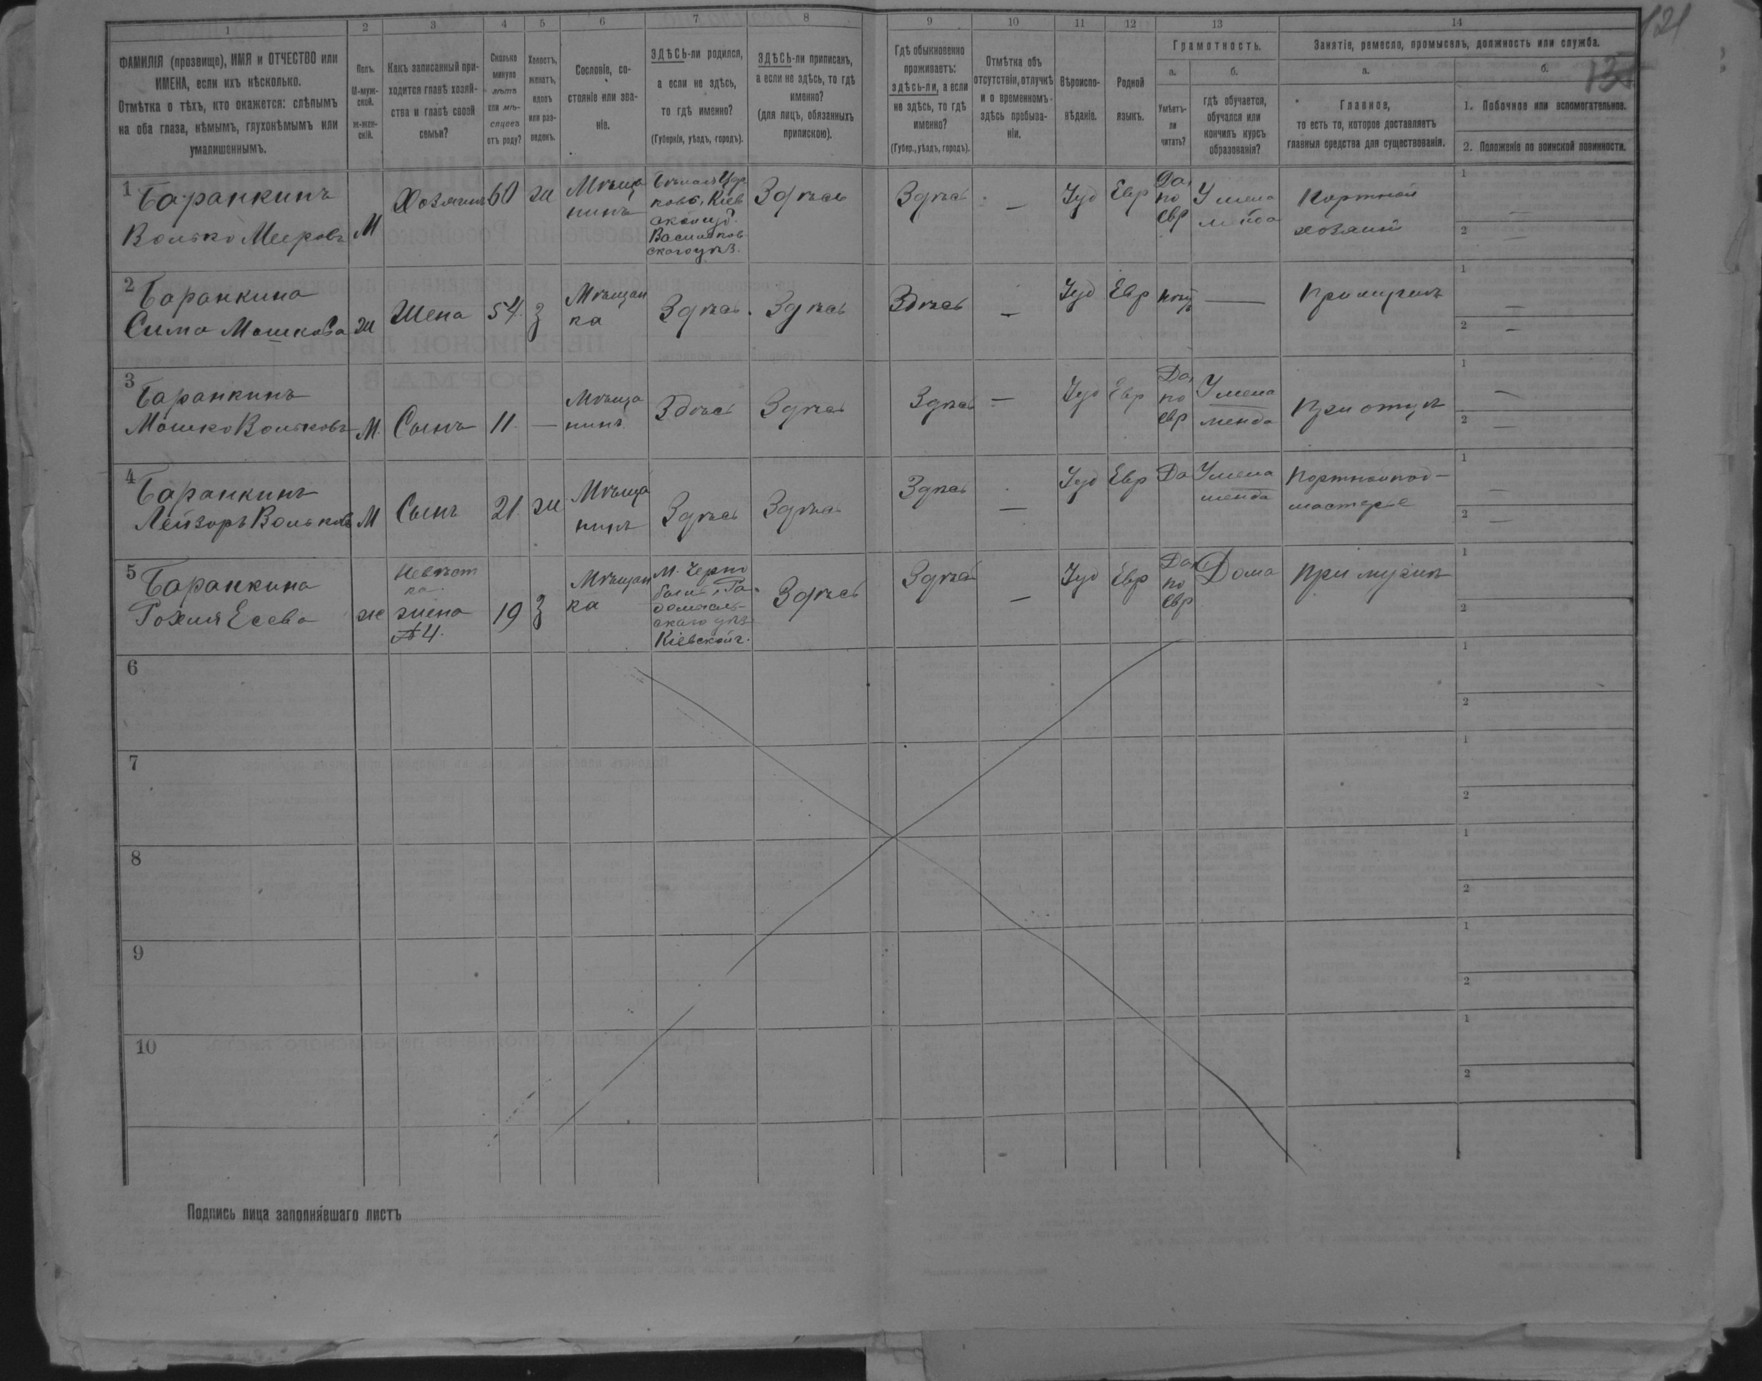 121
13
1 2 3 4 5 6 7 8 9 10 11 12 13 14
ФАМИЛІЯ (прозвище), ИМЯ и ОТЧЕСТВО или
ИМЕНА, если ихъ нѣсколько.
Отмѣтка о тѣхъ, кто окажется: слѣпымъ
на оба глаза, нѣмымъ, глухонѣмымъ или
умалишеннымъ.
Полъ.
М-муж-
ской.
ж-жен-
скій.
Какъ записанный при-
ходится главѣ хозяй-
ства и главѣ своей
семьи?
Сколько
минуло
лѣтъ
или мѣ-
сяцевъ
отъ роду?
Холостъ,
женатъ,
вдовъ
или раз-
веденъ.
Сословіе, со-
стояніе или зва-
ніе.
ЗДѢСЬ-ли родился,
а если не здѣсь,
то гдѣ именно?
(Губернія, уѣздъ, городъ).
ЗДѢСЬ-ли приписанъ,
а если не здѣсь, то гдѣ
именно?
(для лицъ, обязанныхъ
припискою).
Гдѣ обыкновенно
проживаетъ:
здѣсь-ли, а если
не здѣсь, то гдѣ
именно?
(Губер., уѣздъ, городъ).
Отмѣтка объ
отсутствіи, отлучкѣ
и о временномъ
здѣсь пребыва-
ніи.
Вѣроиспо-
вѣданіе.
Родной
языкъ.
Грамотность.
а.
Умѣетъ-
ли
читать?
б.
гдѣ обучается,
обучался или
кончилъ курсъ
образованія?
Занятіе, ремесло, промыселъ, должность или служба.
а.
Главное,
то есть то, которое доставляетъ
главныя средства для существованія.
б.
1. Побочное или вспомогательное.
2. Положеніе по воинской повинности.
1 Баранкинъ
Волько Меировъ
М
Хозяинъ
60
ж
Мѣща
нинъ
Бѣлая Цер
ковь, Кiев
ской губ.
Васильков
скаго уѣз.
Здѣсь
Здѣсь
—
Iуд
Евр
Да
по
евр
У мела
меда
Портной
хозяинъ
1 —
2 —
2 Баранкина
Сима Мошкова
ж
Жена
54
з
Мѣщан
ка
Здѣсь
Здѣсь
Здѣсь
—
Iуд
Евр
нѣтъ
—
При мужѣ
1 —
2 —
3 Баранкинъ
Мошко Вольковъ
М
Сынъ
11
—
Мѣща
нинъ
Здѣсь
Здѣсь
Здѣсь
—
Iуд
Евр
Да
по
евр
У мела
меда
При отцѣ
1 —
2 —
4 Баранкинъ
Лейзоръ Вольковъ
М
Сынъ
21
ж
Мѣща
нинъ
Здѣсь
Здѣсь
Здѣсь
—
Iуд
Евр
Да
У мела
меда
Портной под-
мастерье
1 —
2 —
5 Баранкина
Рохля Есева
ж
Невѣст
ка
жена
№ 4.
19
з
Мѣщан
ка
М. Черно
быль, Ра-
домысль-
скаго уѣз
Кіевской г.
Здѣсь
Здѣсь
—
Iуд
Евр
Да
по
евр
Дома
При мужѣ
1
2
6
1
2
7
1
2
8
1
2
9
1
2
10
1
2
Подпись лица заполнявшаго листъ